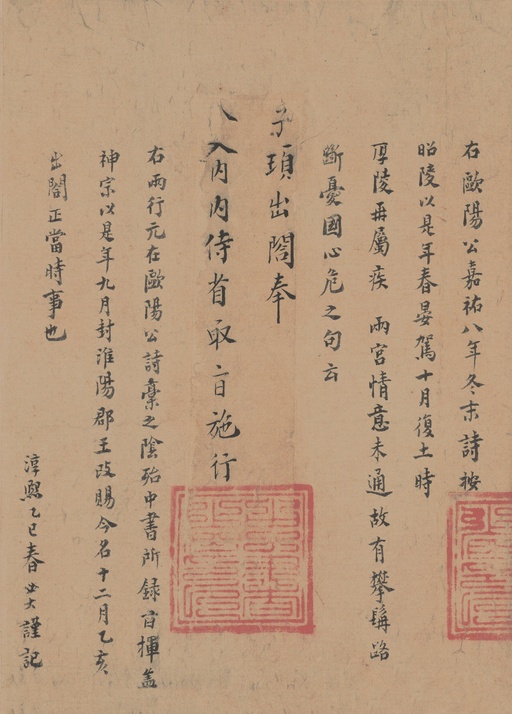 右歐陽公嘉祐八年冬末詩按
昭陵以是年春晏駕十月復土時
厚陵再屬疾 兩宮情意未通故有攀髯路
斷憂國心危之句云
頊出閤奉
入內內侍省取旨施行
右兩行元在歐陽公詩藁之陰殆中書所錄旨揮蓋
神宗以是年九月封淮陽郡王改賜今名十二月乙亥
出閤正當時事也
淳熙乙巳春必大謹記